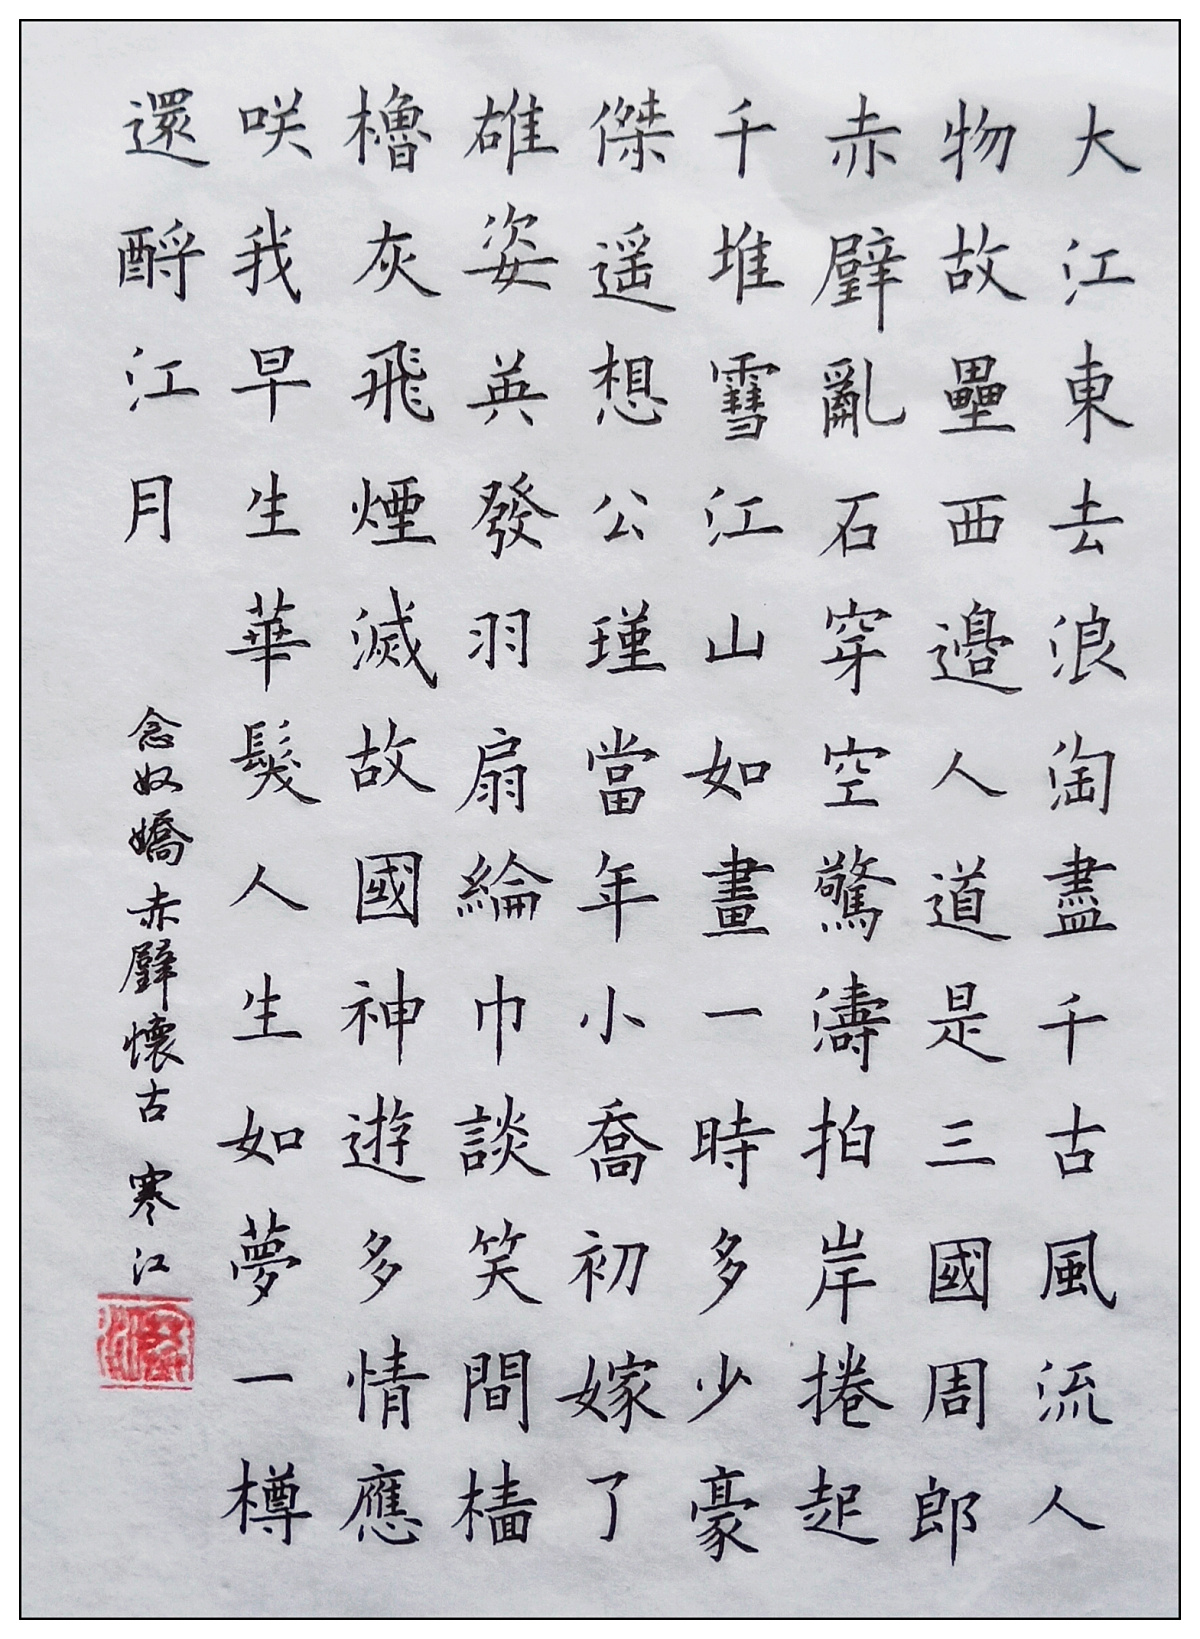 大江東去浪淘盡千古風流人
物故壘西邊人道是三國周郎
赤壁亂石穿空驚濤拍岸捲起
千堆雪江山如畫一時多少豪
傑遥想公瑾當年小喬初嫁了
雄姿英發羽扇綸巾談笑間檣
櫓灰飛煙滅故國神遊多情應
咲我早生華髮人生如夢一樽
還酹江月
念奴嬌赤壁懷古 寒江